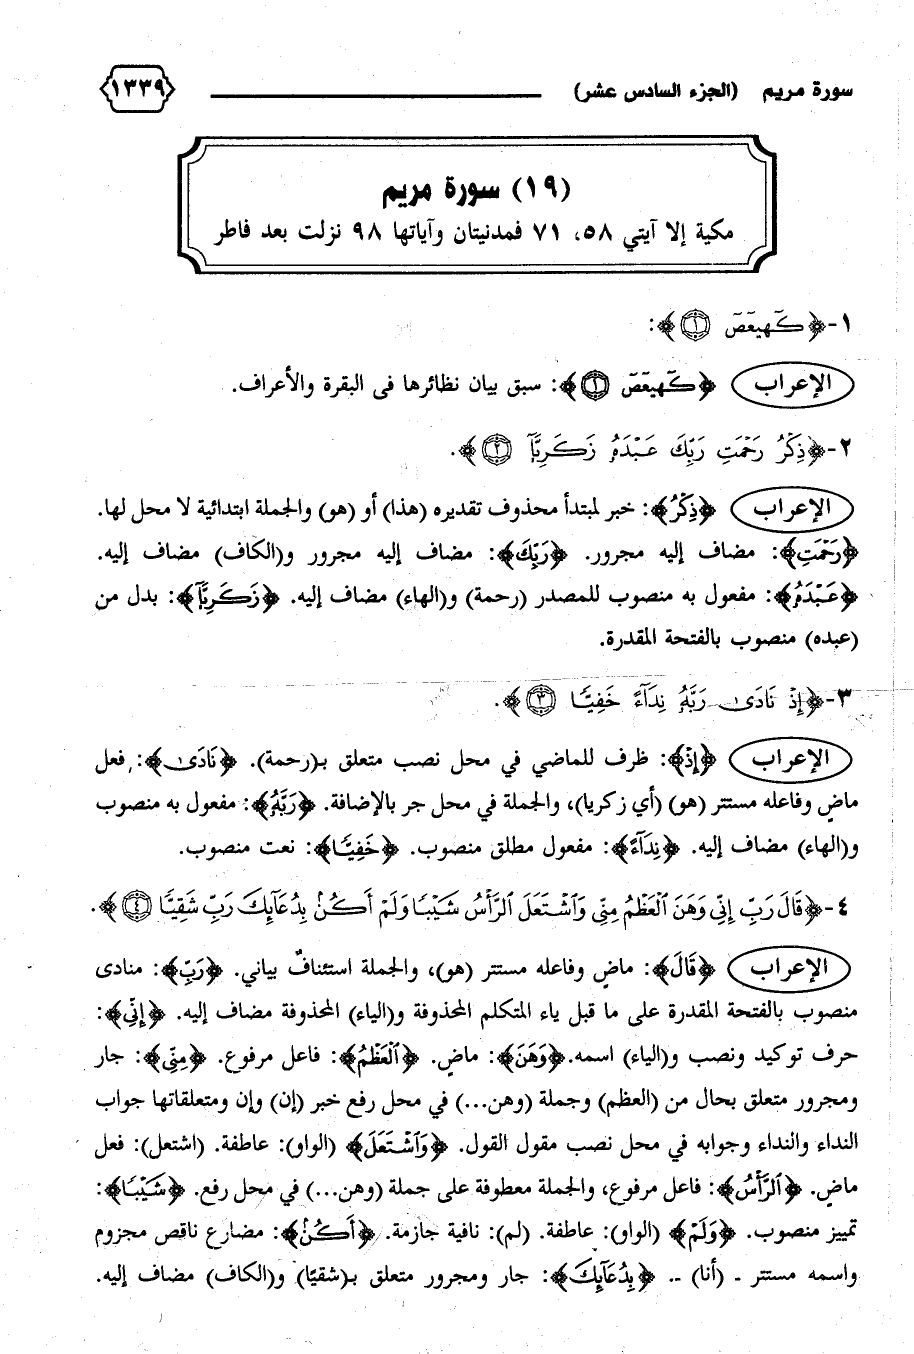 سورة مريم (الجزء السادس عشر) ١٣٣٩
(١٩) سورة مريم
مكية إلا آيتي ٥٨، ٧١ فمدنيتان وآياتها ٩٨ نزلت بعد فاطر
١-﴿كٓهيعٓصٓ ١﴾:
الإعراب ﴿كٓهيعٓصٓ ١﴾: سبق بيان نظائرها فى البقرة والأعراف.
٢-﴿ذِكْرُ رَحْمَتِ رَبِّكَ عَبْدَهُۥ زَكَرِيَّآ ٢﴾.
الإعراب ﴿ذِكْرُ﴾: خبر لمبتدأ محذوف تقديره (هذا) أو (هو) والجملة ابتدائية لا محل لها.
﴿رَحْمَتِ﴾: مضاف إليه مجرور. ﴿رَبِّكَ﴾: مضاف إليه مجرور و(الكاف) مضاف إليه.
﴿عَبْدَهُۥ﴾: مفعول به منصوب للمصدر (رحمة) و(الهاء) مضاف إليه. ﴿زَكَرِيَّآ﴾: بدل من
(عبده) منصوب بالفتحة المقدرة.
٣-﴿إِذْ نَادَىٰ رَبَّهُۥ نِدَآءً خَفِيًّا ٣﴾.
الإعراب ﴿إِذْ﴾: ظرف للماضي في محل نصب متعلق بـ(رحمة). ﴿نَادَىٰ﴾: فعل
ماضٍ وفاعله مستتر (هو) (أي زكريا)، والجملة في محل جر بالإضافة. ﴿رَبَّهُۥ﴾: مفعول به منصوب
و(الهاء) مضاف إليه. ﴿نِدَآءً﴾: مفعول مطلق منصوب. ﴿خَفِيًّا﴾: نعت منصوب.
٤-﴿قَالَ رَبِّ إِنِّي وَهَنَ ٱلْعَظْمُ مِنِّي وَٱشْتَعَلَ ٱلرَّأْسُ شَيْبًا وَلَمْ أَكُنۢ بِدُعَآئِكَ رَبِّ شَقِيًّا ٤﴾.
الإعراب ﴿قَالَ﴾: ماضٍ وفاعله مستتر (هو)، والجملة استئنافٌ بياني. ﴿رَبِّ﴾: منادى
منصوب بالفتحة المقدرة على ما قبل ياء المتكلم المحذوفة و(الياء) المحذوفة مضاف إليه. ﴿إِنِّي﴾:
حرف توكيد ونصب و(الياء) اسمه. ﴿وَهَنَ﴾: ماضٍ. ﴿ٱلْعَظْمُ﴾: فاعل مرفوع. ﴿مِنِّي﴾: جار
ومجرور متعلق بحال من (العظم) وجملة (وهن...) في محل رفع خبر (إن) وإن ومتعلقاتها جواب
النداء والنداء وجوابه في محل نصب مقول القول. ﴿وَٱشْتَعَلَ﴾ (الواو): عاطفة. (اشتعل): فعل
ماضٍ. ﴿ٱلرَّأْسُ﴾: فاعل مرفوع، والجملة معطوفة على جملة (وهن...) في محل رفع. ﴿شَيْبًا﴾:
تمييز منصوب. ﴿وَلَمْ﴾ (الواو): عاطفة. (لم): نافية جازمة. ﴿أَكُنۢ﴾: مضارع ناقص مجزوم
واسمه مستتر ـ (أنا) ـ. ﴿بِدُعَآئِكَ﴾: جار ومجرور متعلق بـ(شقيًا) و(الكاف) مضاف إليه.